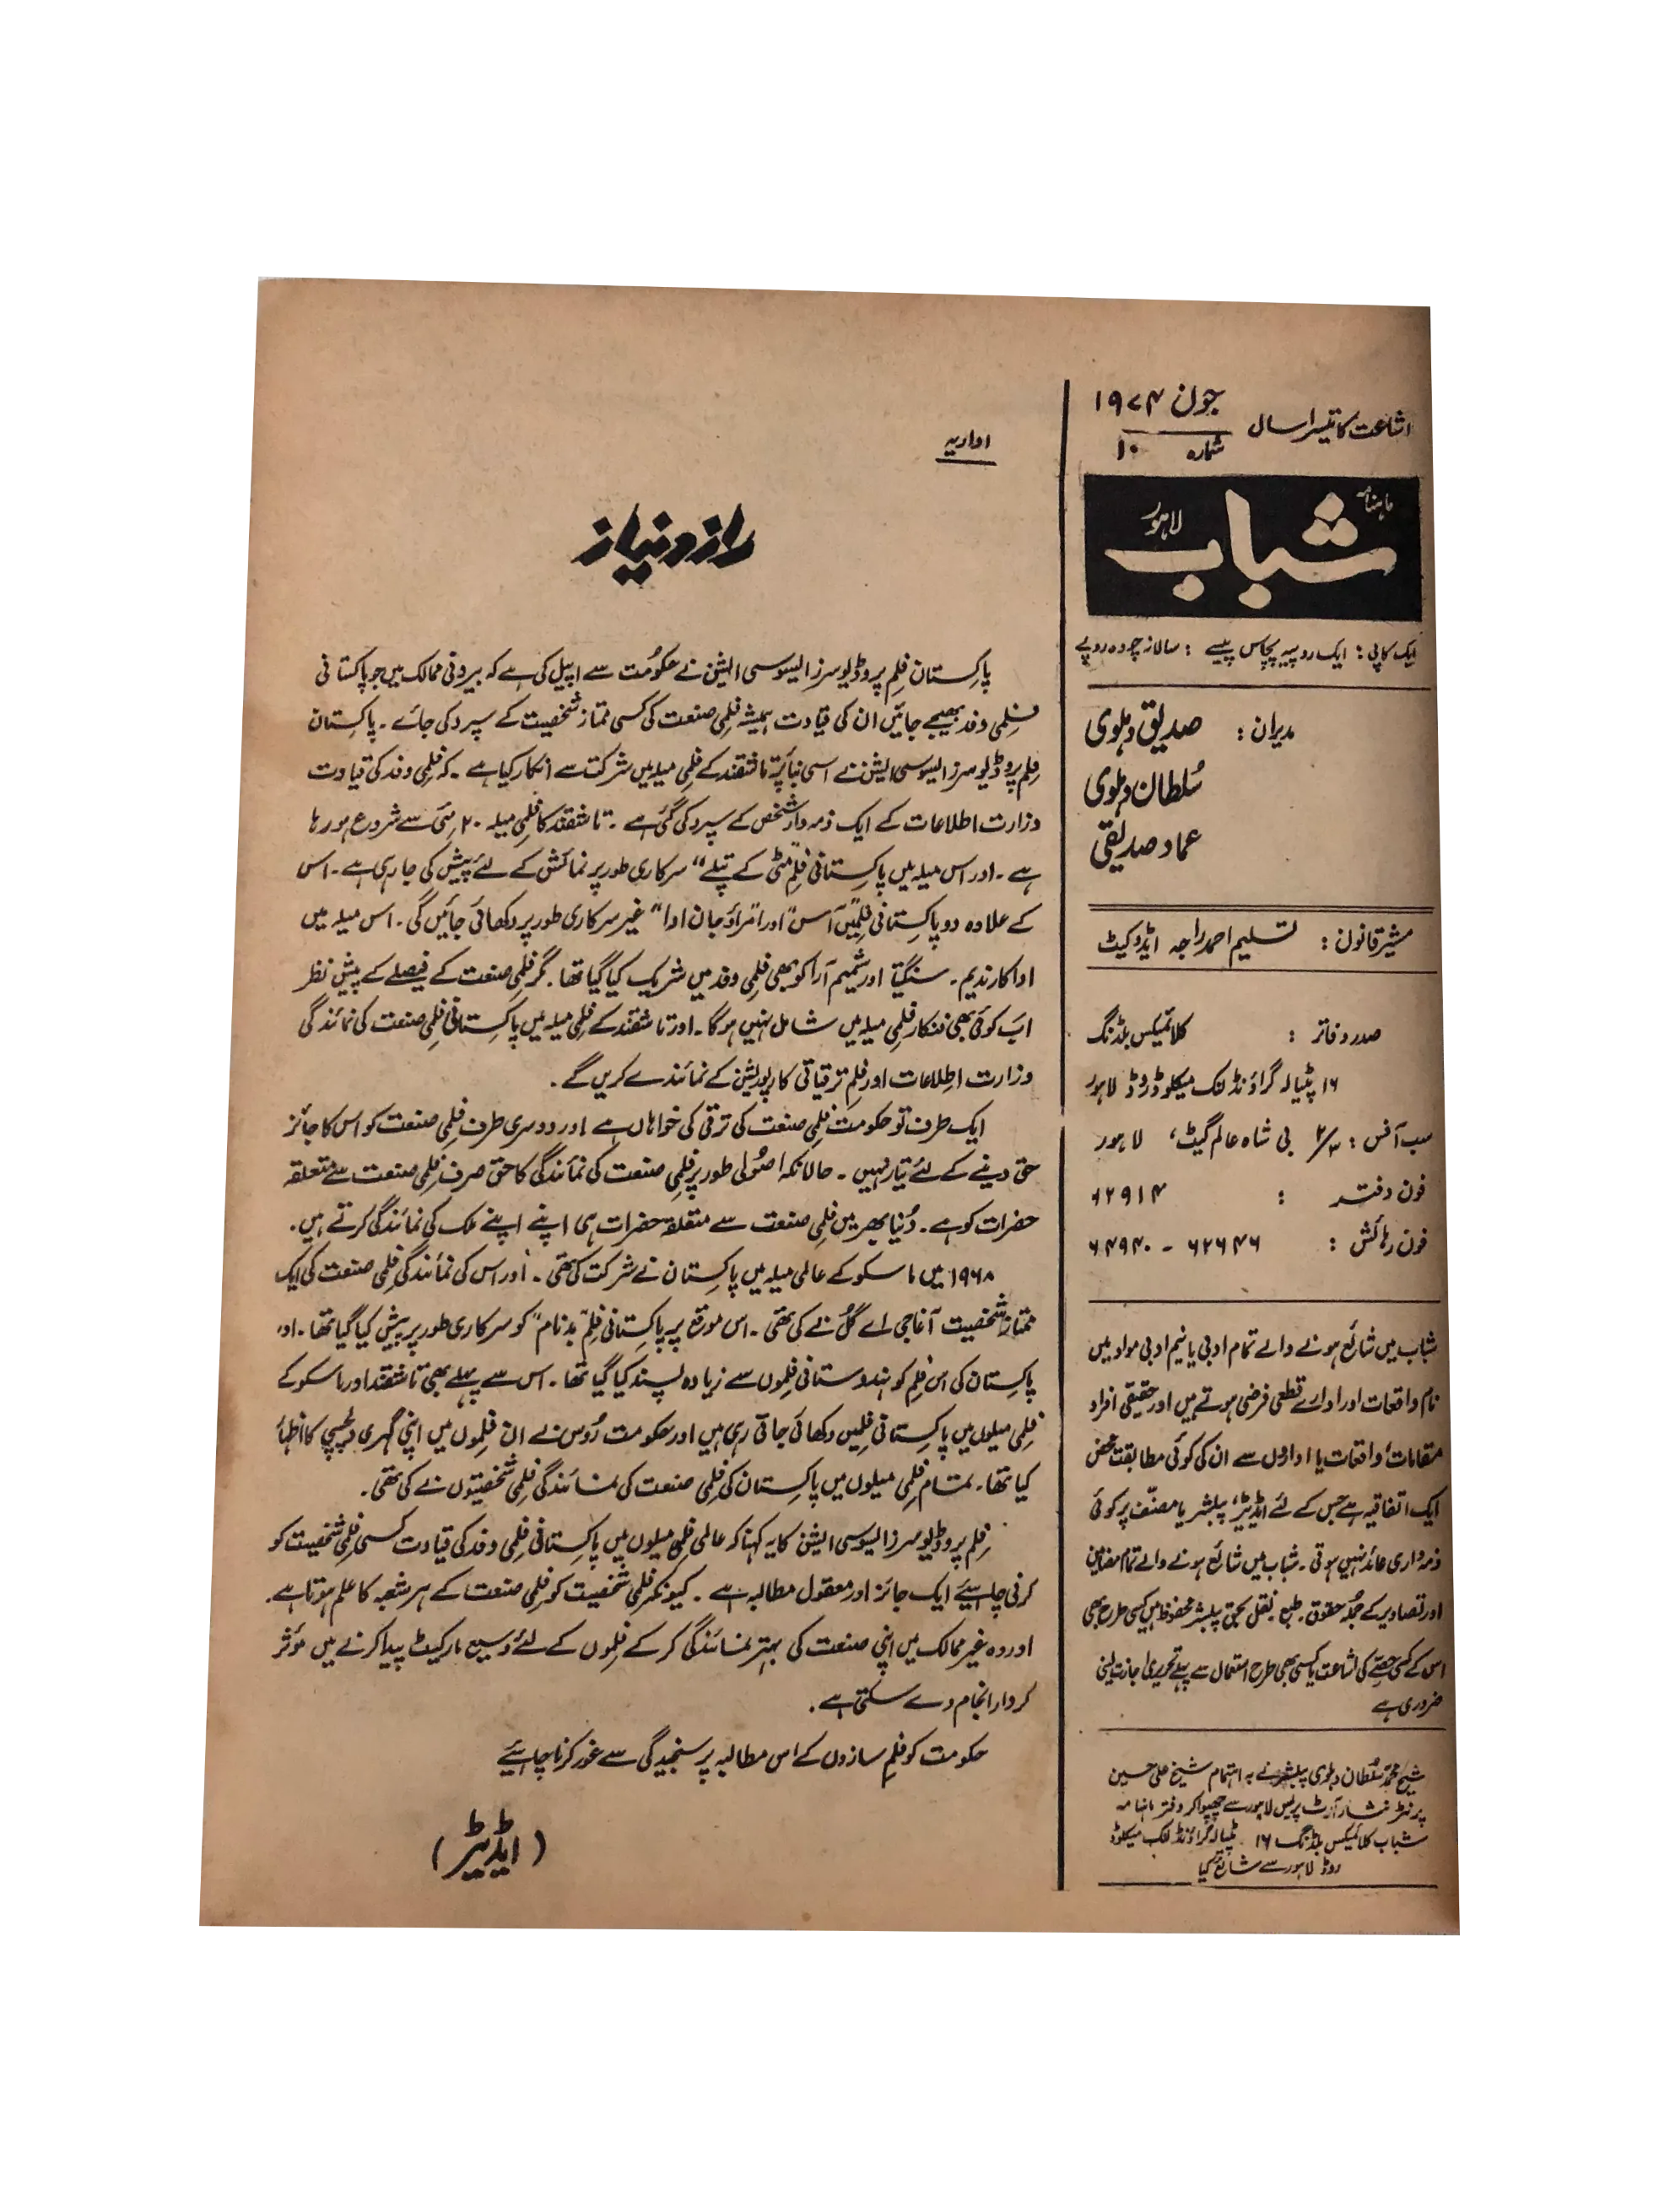 اشاعت کا تیسرا سال
جون ۱۹۷۴
شمارہ ۱۰
ماہنامہ
شباب
لاہور
ایک کاپی : ایک روپیہ پچاس پیسے : سالانہ چودہ روپے
مدیران : صدیق دہلوی
سُلطان دہلوی
عماد صدیقی
مشیر قانون : تسلیم احمد راجہ ایڈوکیٹ
صدر دفاتر : کلائمیکس بلڈنگ
۱۶ پٹیالہ گراؤنڈ لنک میکلوڈ روڈ لاہور
سب آفس : بی شاہ عالم گیٹ، لاہور
فون دفتر : ۶۲۹۱۴
فون رہائش : ۶۲۶۴۶ - ۶۴۹۴۰
شباب میں شائع ہونے والے تمام ادبی یا نیم ادبی مواد میں
نام واقعات اور ادارے قطعی فرضی ہوتے ہیں اور حقیقی افراد
مقامات، واقعات یا اداروں سے ان کی کوئی مطابقت محض
ایک اتفاقیہ ہے جس کے لئے ایڈیٹر، پبلشر یا مصنّف پر کوئی
ذمہ داری عائد نہیں ہوتی۔ شباب میں شائع ہونے والے تمام مضامین
اور تصاویر کے جُملہ حقوق۔ طبع نقل بحق پبلشر محفوظ ہیں کسی طرح بھی
اس کے کسی حصّے کی اشاعت یا کسی بھی طرح استعمال سے پہلے تحریری اجازت لینی
ضروری ہے
شیخ محمد سُلطان دہلوی پبلشر نے بہ اہتمام شیخ علی حسین
پرنٹر نثار آرٹ پریس لاہور سے چھپوا کر دفتر ماہنامہ
شباب کلائمیکس بلڈنگ ۱۶ پٹیالہ گراؤنڈ لنک میکلوڈ
روڈ لاہور سے شائع کیا
اداریہ
راز و نیاز
پاکستان فلم پروڈیوسرز ایسوسی ایشن نے حکومُت سے اپیل کی ہے کہ بیرونی ممالک میں جو پاکستانی
فلمی وفد بھیجے جائیں ان کی قیادت ہمیشہ فلمی صنعت کی کسی ممتاز شخصیت کے سپرد کی جائے۔ پاکستان
فلم پروڈیوسرز ایسوسی ایشن نے اسی بنا پر تاشقند کے فلمی میلہ میں شرکت سے انکار کیا ہے۔ کہ فلمی وفد کی قیادت
وزارت اطلاعات کے ایک ذمہ دار شخص کے سپرد کی گئی ہے۔ تاشقند کا فلمی میلہ ۲۰؍ مئی سے شروع ہو رہا
ہے۔ اور اس میلہ میں پاکستانی فلم ”مٹی کے پتلے“ سرکاری طور پر نمائش کے لئے پیش کی جا رہی ہے۔ اس
کے علاوہ دو پاکستانی فلمیں ”آس“ اور ”امراؤ جان ادا“ غیر سرکاری طور پر دکھائی جائیں گی۔ اس میلہ میں
اداکار ندیم۔ سنگیتا اور شمیم آرا کو بھی فلمی وفد میں شریک کیا گیا تھا۔ مگر فلمی صنعت کے فیصلے کے پیش نظر
اب کوئی بھی فنکار فلمی میلہ میں شامل نہیں ہوگا۔ اور تاشقند کے فلمی میلہ میں پاکستانی فلمی صنعت کی نمائندگی
وزارت اطلاعات اور فلم ترقیاتی کارپوریشن کے نمائندے کریں گے۔
ایک طرف تو حکومت فلمی صنعت کی ترقی کی خواہاں ہے اور دوسری طرف فلمی صنعت کو اس کا جائز
حق دینے کے لئے تیار نہیں۔ حالانکہ اصُولی طور پر فلمی صنعت کی نمائندگی کا حق صرف فلمی صنعت سے متعلقہ
حضرات کو ہے۔ دُنیا بھر میں فلمی صنعت سے متعلقہ حضرات ہی اپنے اپنے ملک کی نمائندگی کرتے ہیں۔
۱۹۶۸ میں ماسکو کے عالمی میلہ میں پاکستان نے شرکت کی تھی۔ اور اس کی نمائندگی فلمی صنعت کی ایک
ممتاز شخصیت آغا جی اے گُل نے کی تھی۔ اس موقع پر پاکستانی فلم ”بدنام“ کو سرکاری طور پر پیش کیا گیا تھا۔ اور
پاکستان کی اس فلم کو ہندوستانی فلموں سے زیادہ پسند کیا گیا تھا۔ اس سے پہلے بھی تاشقند اور ماسکو کے
فلمی میلوں میں پاکستانی فلمیں دکھائی جاتی رہی ہیں اور حکومت رُوس نے ان فلموں میں اپنی گہری دلچسپی کا اظہار
کیا تھا۔ تمام فلمی میلوں میں پاکستان کی فلمی صنعت کی نمائندگی فلمی شخصیتوں نے کی تھی۔
فلم پروڈیوسرز ایسوسی ایشن کا یہ کہنا کہ عالمی فلمی میلوں میں پاکستانی فلمی وفد کی قیادت کسی فلمی شخصیت کو
کرنی چاہیئے ایک جائز اور معقول مطالبہ ہے۔ کیونکہ فلمی شخصیت کو فلمی صنعت کے ہر شعبہ کا علم ہوتا ہے۔
اور وہ غیر ممالک میں اپنی صنعت کی بہتر نمائندگی کر کے فلموں کے لئے وسیع مارکیٹ پیدا کرنے میں مؤثر
کردار انجام دے سکتی ہے۔
حکومت کو فلم سازوں کے اس مطالبہ پر سنجیدگی سے غور کرنا چاہیئے
(ایڈیٹر)